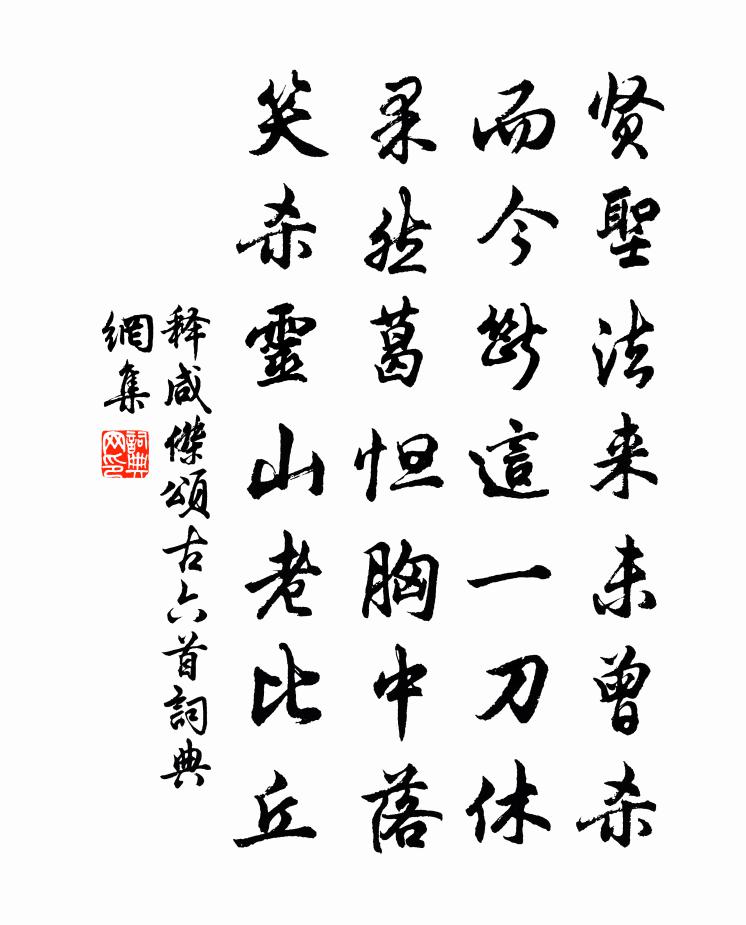 贤聖法来未曾杀
而今断這一刀休
果然葛怛胸中落
笑杀靈山老比丘
释咸傑頌古六首詞典
網集
詞典网印